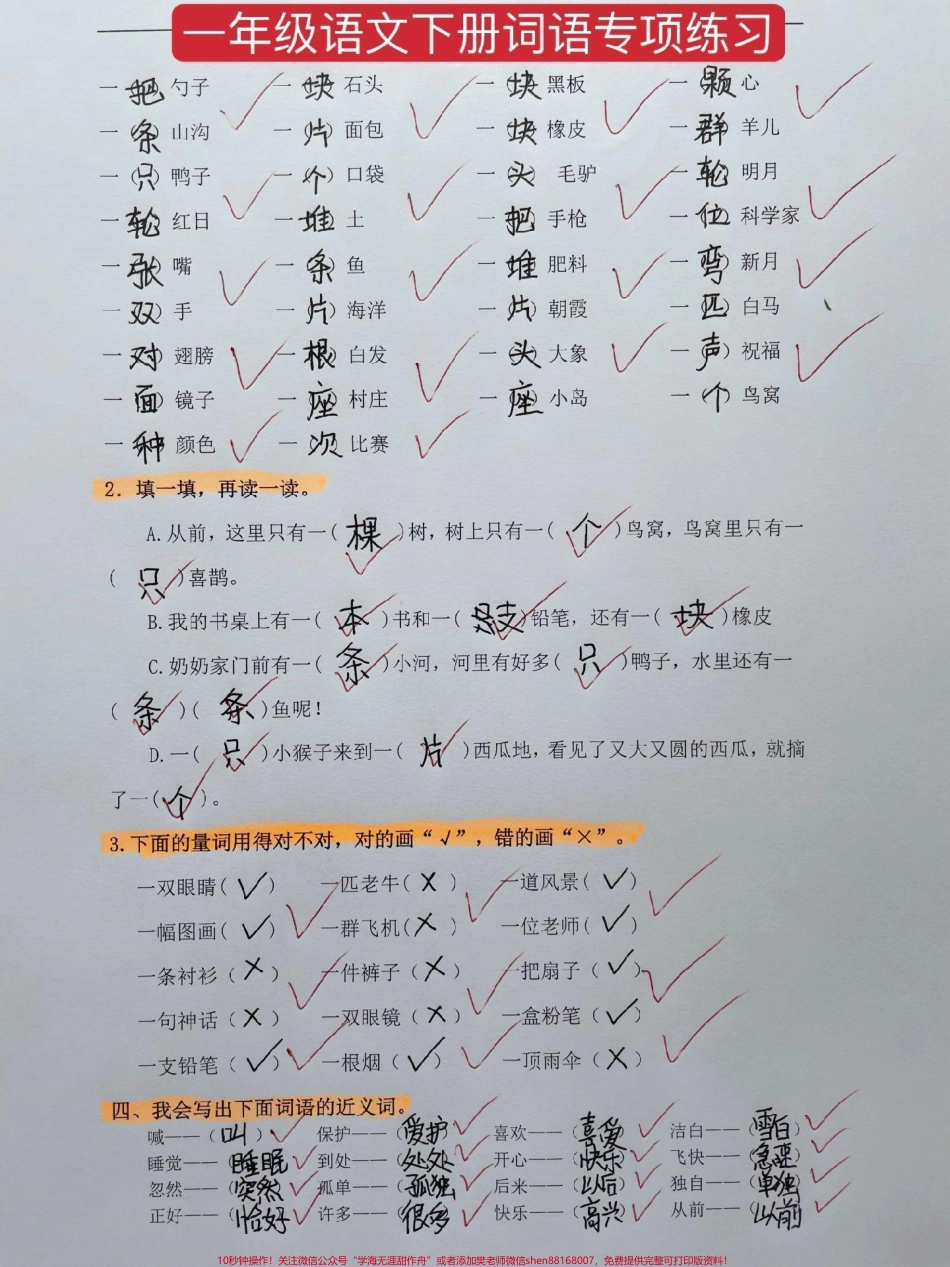 一年级语文下册词语专项练习
一(把)勺子 一(块)石头 一(块)黑板 一(颗)心
一(条)山沟 一(片)面包 一(块)橡皮 一(群)羊儿
一(只)鸭子 一(个)口袋 一(头)毛驴 一(轮)明月
一(轮)红日 一(堆)土 一(把)手枪 一(位)科学家
一(张)嘴 一(条)鱼 一(堆)肥料 一(弯)新月
一(双)手 一(片)海洋 一(片)朝霞 一(匹)白马
一(对)翅膀 一(根)白发 一(头)大象 一(声)祝福
一(面)镜子 一(座)村庄 一(座)小岛 一(个)鸟窝
一(种)颜色 一(次)比赛
2. 填一填，再读一读。
A.从前，这里只有一(棵)树，树上只有一(个)鸟窝，鸟窝里只有一
(只)喜鹊。
B.我的书桌上有一(本)书和一(支)铅笔，还有一(块)橡皮
C.奶奶家门前有一(条)小河，河里有好多(只)鸭子，水里还有一
(条)(条)鱼呢！
D.一(只)小猴子来到一(片)西瓜地，看见了又大又圆的西瓜，就摘
了一(个)。
3.下面的量词用得对不对，对的画“√”，错的画“×”。
一双眼睛(√) 一匹老牛(×) 一道风景(√)
一幅图画(√) 一群飞机(×) 一位老师(√)
一条衬衫(×) 一件裤子(×) 一把扇子(√)
一句神话(×) 一双眼镜(×) 一盒粉笔(√)
一支铅笔(√) 一根烟(√) 一顶雨伞(×)
四、我会写出下面词语的近义词。
喊——(叫) 保护——(爱护) 喜欢——(喜爱) 洁白——(雪白)
睡觉——(睡眠) 到处——(处处) 开心——(快乐) 飞快——(急速)
忽然——(突然) 孤单——(孤独) 后来——(以后) 独自——(单独)
正好——(恰好) 许多——(很多) 快乐——(高兴) 从前——(以前)
10秒钟操作！关注微信公众号“学海无涯甜作舟”或者添加樊老师微信shen88168007，免费提供完整可打印版资料！